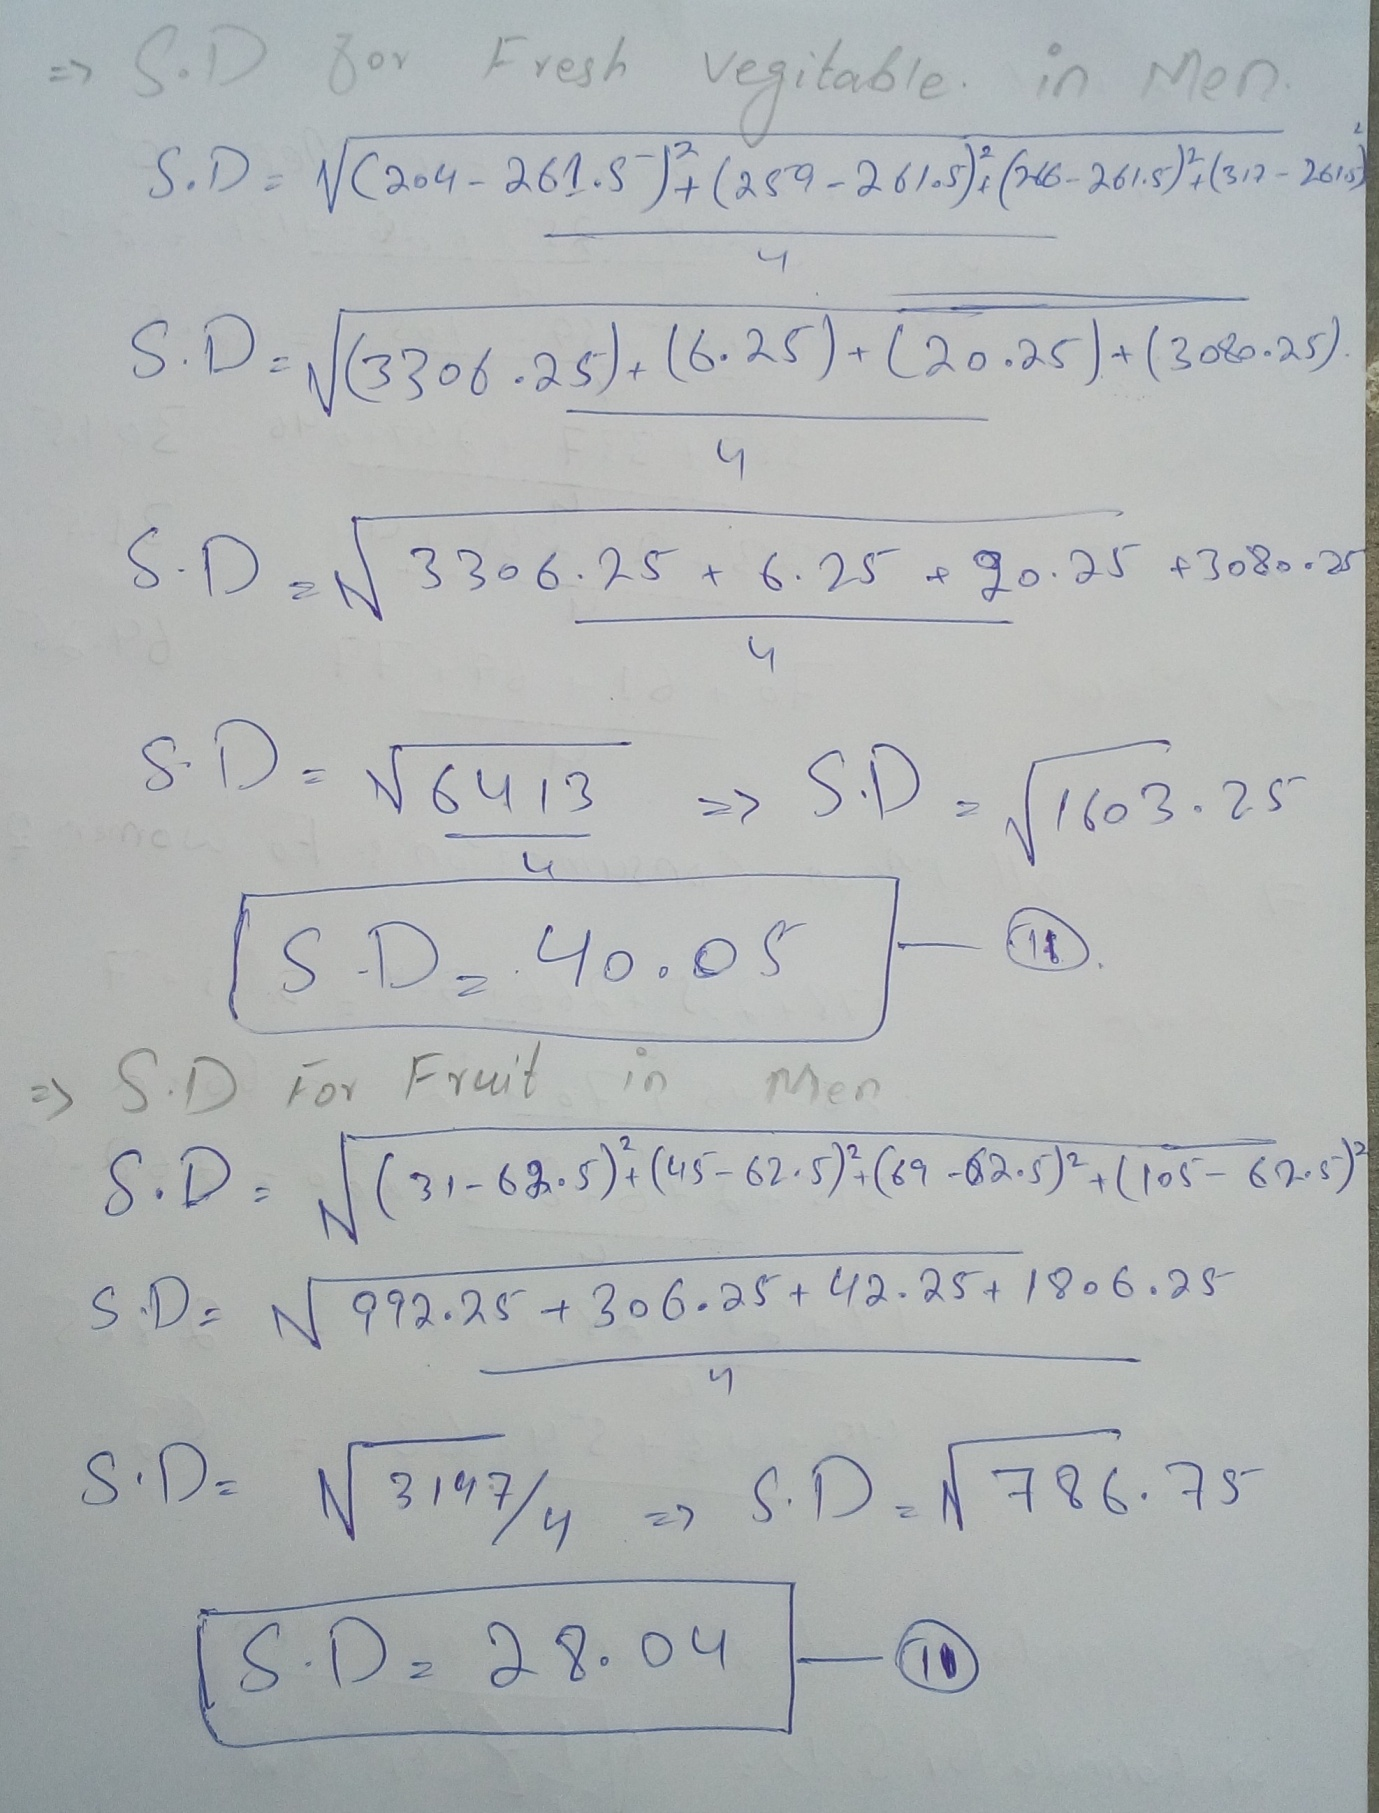 => S.D for Fresh vegitable. in Men.
S.D = √(204-261.5)²+(259-261.5)²+(266-261.5)²+(317-261.5)²
4
S.D = √(3306.25)+(6.25)+(20.25)+(3080.25).
4
S.D = √3306.25 + 6.25 + 20.25 +3080.25
4
S.D = √6413 => S.D = √1603.25
4
S.D = 40.05 —
=> S.D For Fruit in Men
S.D = √(31-62.5)²+(45-62.5)²+(69-62.5)²+(105-62.5)²
S.D = √992.25+306.25+42.25+1806.25
4
S.D = √3147/4 => S.D = √786.75
S.D = 28.04 —